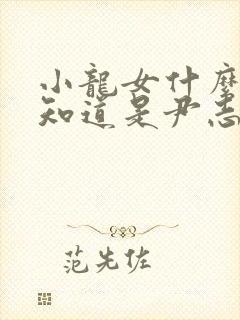 小龍女什麼
知道是尹志
范先佐